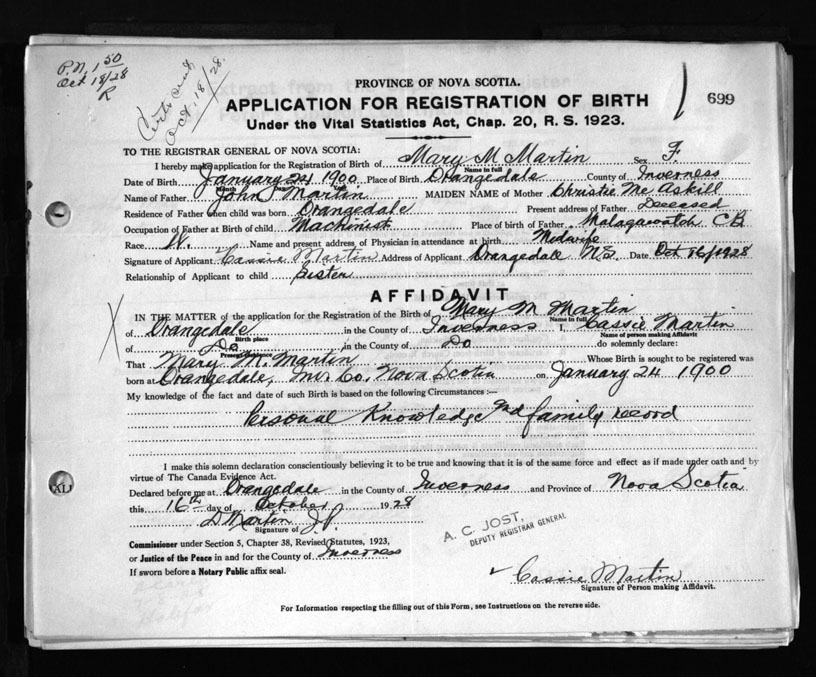 P.N. 1 50
Oct 18/28
R
Certs sent
Oct. 18/28.
PROVINCE OF NOVA SCOTIA.
APPLICATION FOR REGISTRATION OF BIRTH
699
Under the Vital Statistics Act, Chap. 20, R. S. 1923.
TO THE REGISTRAR GENERAL OF NOVA SCOTIA:
I hereby make application for the Registration of Birth of Mary M Martin Sex F.
Name in full
Date of Birth January 24 1900 Place of Birth Orangedale County of Inverness
Month Day
Name of Father John J Martin MAIDEN NAME of Mother Christie Mc Askill
Residence of Father when child was born Orangedale Present address of Father Deceased
Occupation of Father at Birth of child Machinist Place of birth of Father Malagawatch CB
Race W. Name and present address of Physician in attendance at birth Midwife
Signature of Applicant Cassie Martin Address of Applicant Orangedale N.S. Date Oct 16/1928
Relationship of Applicant to child Sister
AFFIDAVIT
IN THE MATTER of the application for the Registration of the Birth of Mary M Martin
Name in full
of Orangedale in the County of Inverness I, Cassie Martin
Birth place Name of person making Affidavit
of Do in the County of Do do solemnly declare:
Present residence
That Mary M. Martin Whose Birth is sought to be registered was
born at Orangedale, Inv. Co. Nova Scotia on January 24 1900
My knowledge of the fact and date of such Birth is based on the following Circumstances :—
Personal Knowledge and family record
I make this solemn declaration conscientiously believing it to be true and knowing that it is of the same force and effect as if made under oath and by
virtue of The Canada Evidence Act.
Declared before me at Orangedale in the County of Inverness and Province of Nova Scotia
this 16th day of October 1928
D Martin J.P.
Signature of
A. C. JOST,
DEPUTY REGISTRAR GENERAL
Commissioner under Section 5, Chapter 38, Revised Statutes, 1923,
or Justice of the Peace in and for the County of Inverness
If sworn before a Notary Public affix seal.
Cassie Martin
Signature of Person making Affidavit.
For Information respecting the filling out of this Form, see Instructions on the reverse side.